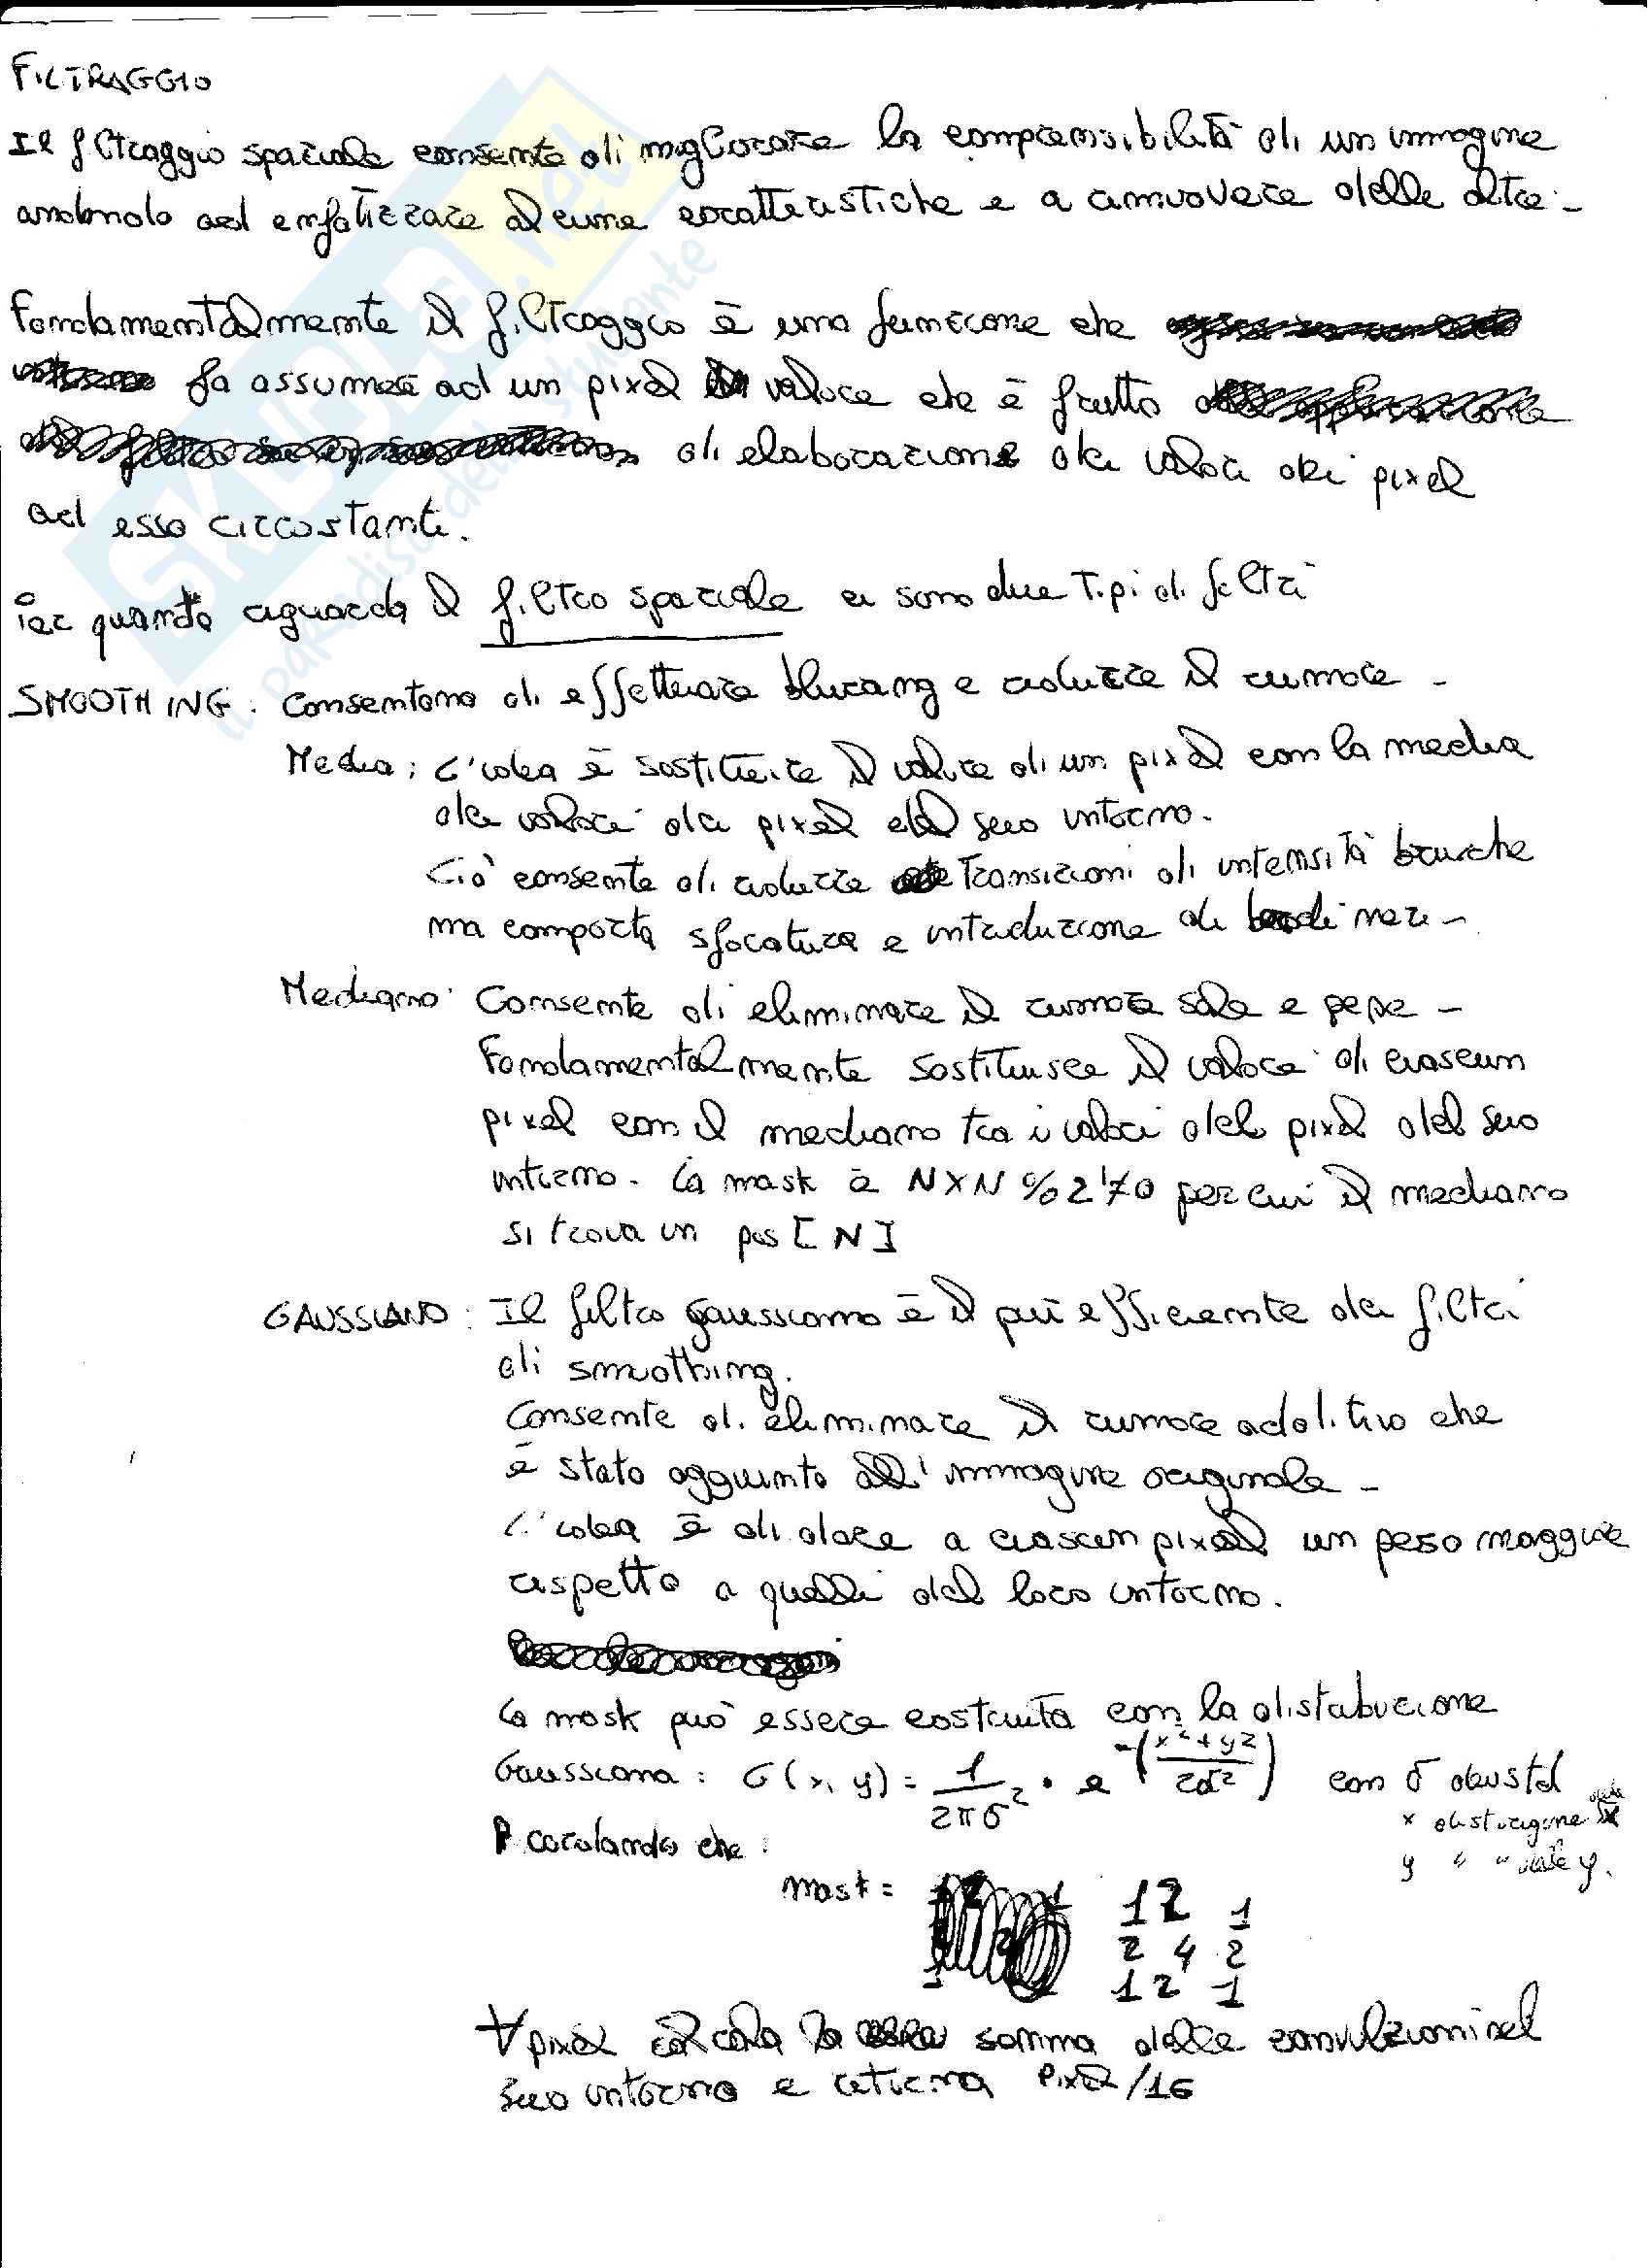 FILTRAGGIO
Il filtraggio spaziale consente di migliorare la comprensibilità di un immagine
andando ad enfatizzare alcune caratteristiche e a rimuovere delle altre -
Fondamentalmente il filtraggio è una funzione che
fa assumere ad un pixel valore che è frutto
di elaborazione dei valori dei pixel
ad esso circostanti.
Per quanto riguarda il filtro spaziale ci sono due tipi di filtri
SMOOTHING: Consentono di effettuare bluring e ridurre il rumore -
Media: L'idea è sostituire il valore di un pixel con la media
dei valori dei pixel del suo intorno.
Ciò consente di ridurre transizioni di intensità brusche
ma comporta sfocature e introduzione di bordi neri -
Mediano: Consente di eliminare il rumore sale e pepe -
Fondamentalmente sostituisce il valore di ciascun
pixel con il mediano tra i valori del pixel del suo
intorno. La mask è N×N %2 ≠0 per cui il mediano
si trova in pos [N]
GAUSSIANO: Il filtro gaussiano è il più efficiente dei filtri
di smoothing.
Consente di eliminare il rumore additivo che
è stato aggiunto all'immagine originale -
L'idea è di dare a ciascun pixel un peso maggiore
rispetto a quelli del loro intorno.
La mask può essere costruita con la distribuzione
Gaussiana: G(x, y) = 1/2πσ² • e^-(x²+y²/2σ²) con σ dev std
x dist origine x
y " " dale y.
Ricordando che:
mask = 1 2 1
2 4 2
1 2 1
∀ pixel calcola la somma delle convoluzioni nel
suo intorno e ritorna Pixel/16
SKUOLA.net
il paradiso dello studente